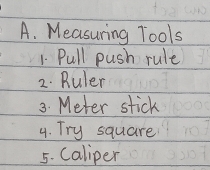 A. Measuring Tools
1. Pull push rule
2. Ruler
3. Meter stick
4. Try square
5. Caliper